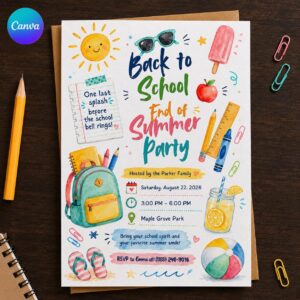 Canva
Back to
School
End of
Summer
Party
One last
splash
before
the school
bell rings!
Hosted by the Parker Family
Saturday, August 22, 2026
3:00 PM – 6:00 PM
Maple Grove Park
Bring your school spirit and
your favorite summer smile!
RSVP to Emma at (555) 248-9016